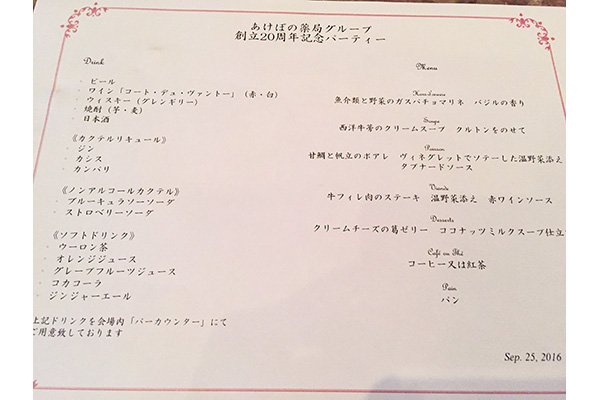 あけぼの薬局グループ
創立20周年記念パーティー
Drink
・ ビール
・ ワイン「コート・デュ・ヴァントー」（赤・白）
・ ウィスキー（グレンギリー）
・ 焼酎（芋・麦）
・ 日本酒
《カクテルリキュール》
・ ジン
・ カシス
・ カンパリ
《ノンアルコールカクテル》
・ ブルーキュラソーソーダ
・ ストロベリーソーダ
《ソフトドリンク》
・ ウーロン茶
・ オレンジジュース
・ グレープフルーツジュース
・ コカコーラ
・ ジンジャーエール
上記ドリンクを会場内「バーカウンター」にて
ご用意致しております
Menu
Hors-d'oeuvre
魚介類と野菜のガスパチョマリネ　バジルの香り
Soupe
西洋牛蒡のクリームスープ　クルトンをのせて
Poisson
甘鯛と帆立のポアレ　ヴィネグレットでソテーした温野菜添え
タプナードソース
Viande
牛フィレ肉のステーキ　温野菜添え　赤ワインソース
Desserts
クリームチーズの葛ゼリー　ココナッツミルクスープ仕立
Café ou Thé
コーヒー又は紅茶
Pain
パン
Sep. 25, 2016